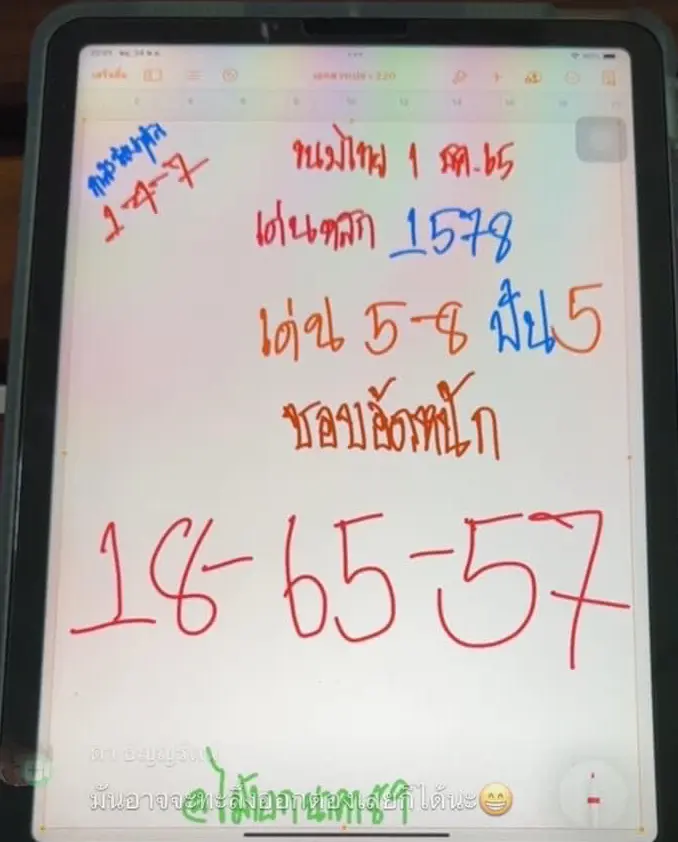 เสร็จสิ้น
1-4-7
ขนมไทย 1 สค.65
เด่นหลัก 1578
เด่น 5-8 ฟัน 5
ชอบอัดหนัก
18-65-57
มันอาจจะทะลึ่งออกตองเลยก็ได้นะ😄